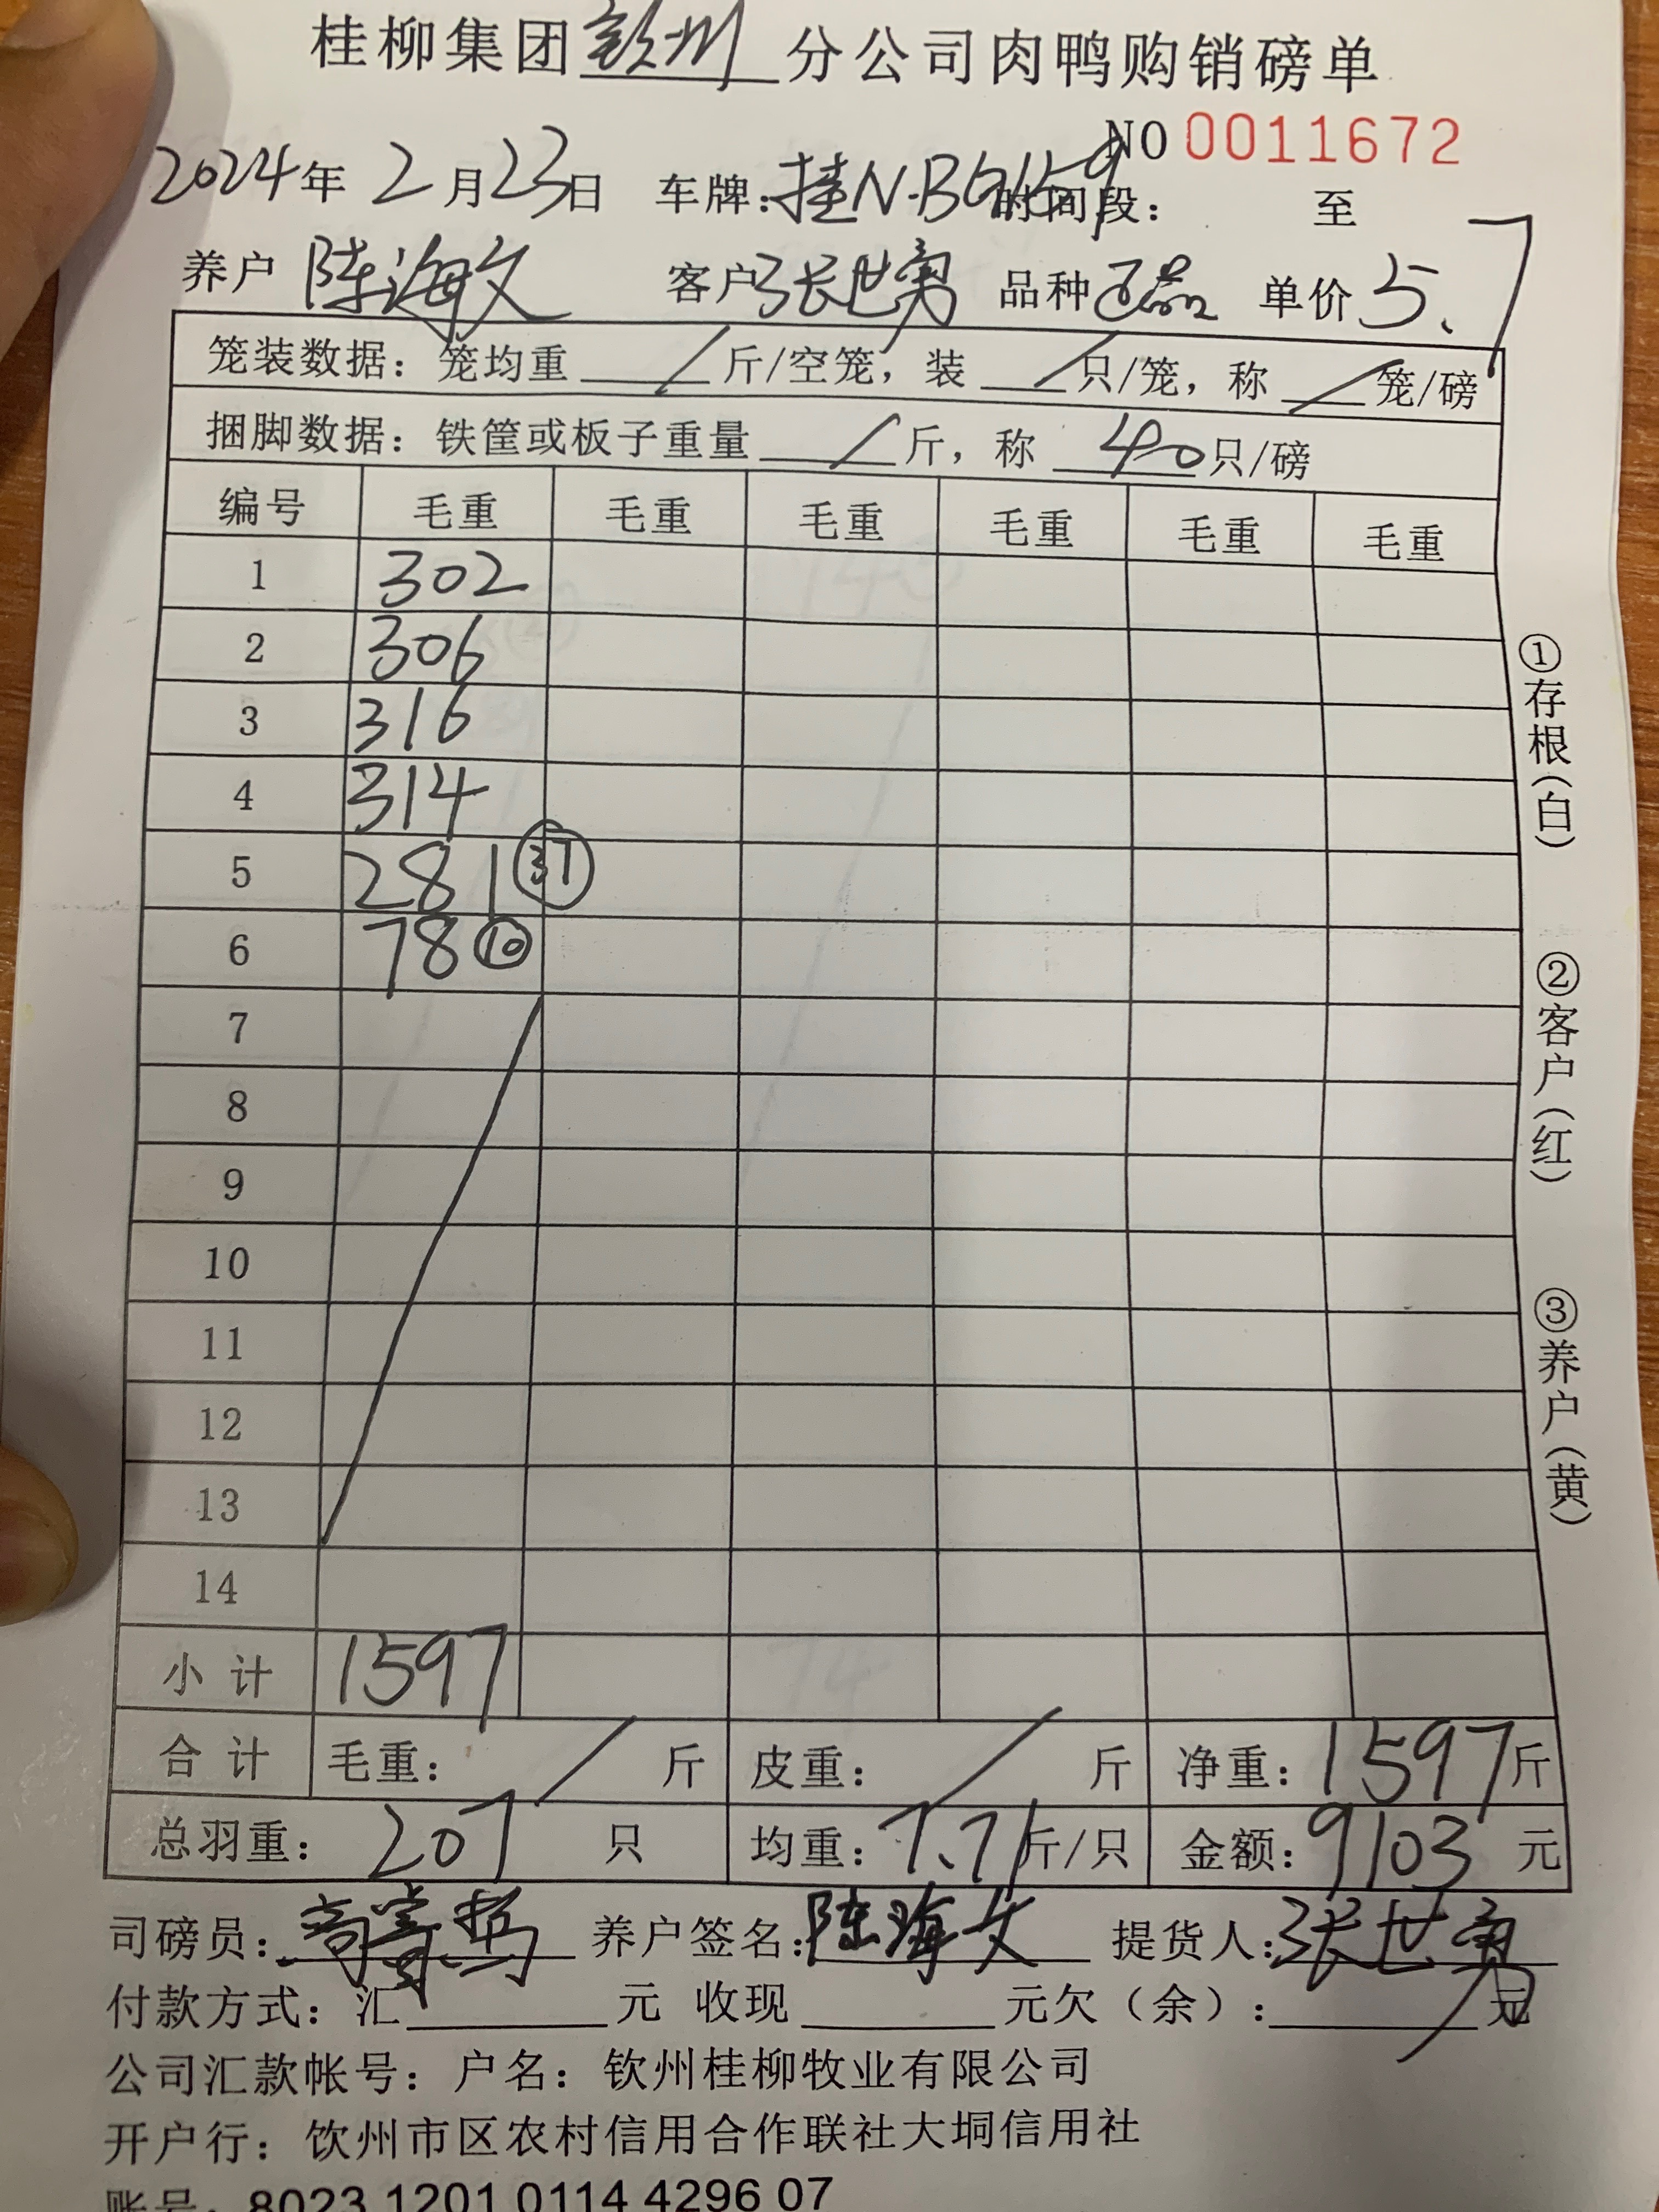 桂柳集团钦州分公司肉鸭购销磅单
NO 0011672
2024年 2月23日 车牌:桂N·BG159 时间段: 至
养户 陈海文 客户 张世勇 品种 单价 5.7
笼装数据: 笼均重 / 斤/空笼, 装 / 只/笼, 称 / 笼/磅
捆脚数据: 铁筐或板子重量 / 斤, 称 40 只/磅
编号 毛重 毛重 毛重 毛重 毛重 毛重
1 302
2 306
3 316
4 314
5 281 37
6 78 10
7
8
9
10
11
12
13
14
小计 1597
合计 毛重: / 斤 皮重: / 斤 净重: 1597斤
总羽重: 207 只 均重: 7.71斤/只 金额: 9103 元
司磅员: 养户签名: 陈海文 提货人: 张世勇
付款方式: 汇 元 收现 元欠(余): 元
公司汇款帐号: 户名: 钦州桂柳牧业有限公司
开户行: 钦州市区农村信用合作联社大垌信用社
账号: 8023 1201 0114 4296 07
①存根(白)
②客户(红)
③养户(黄)